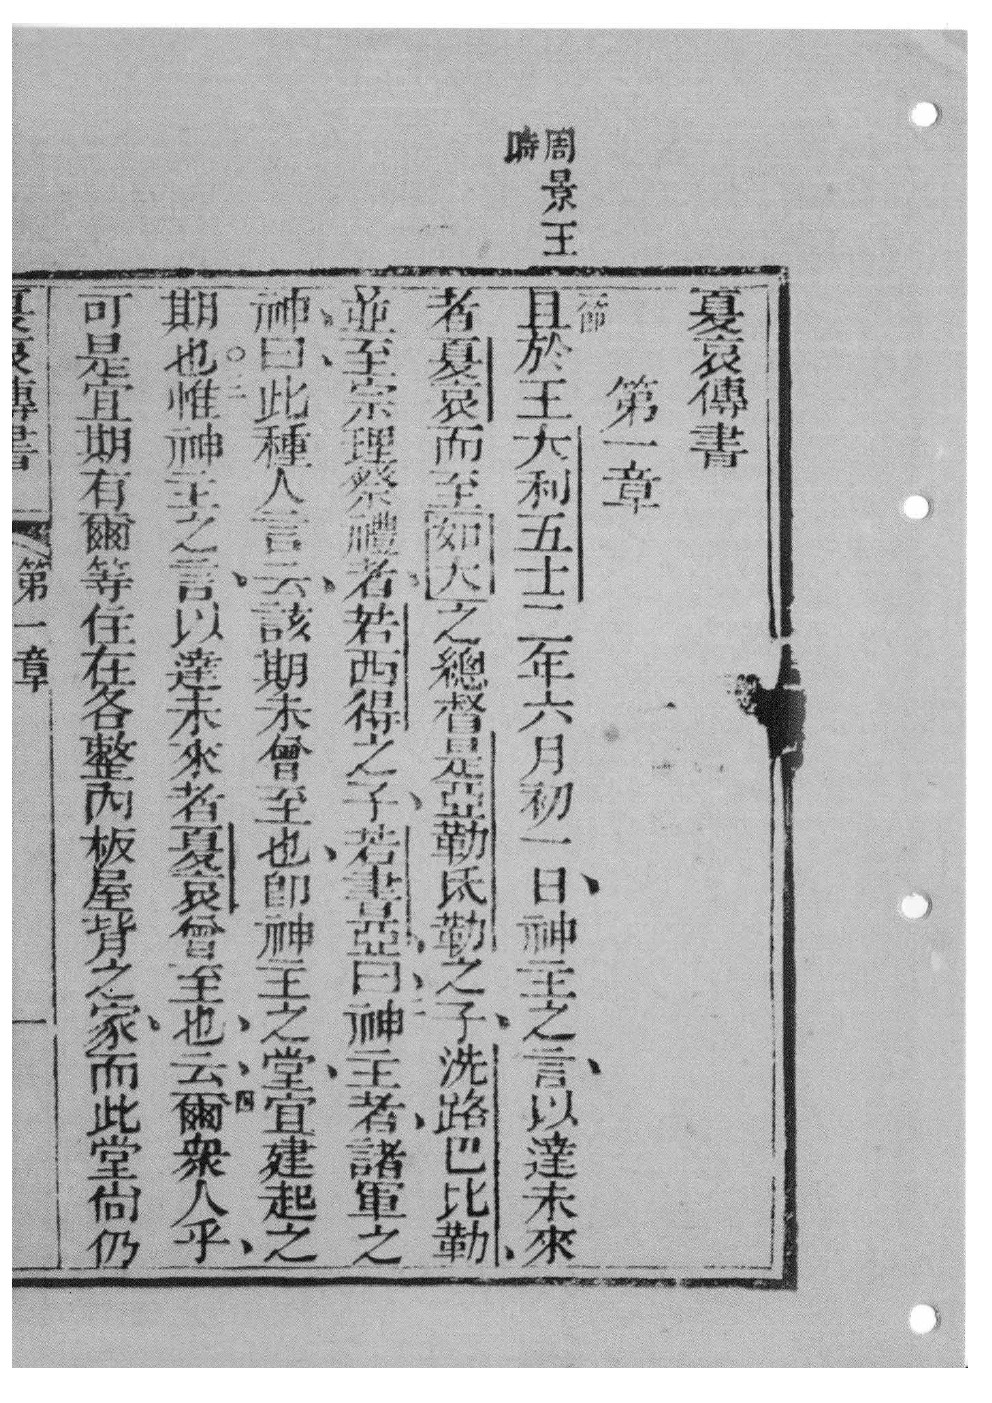 周景王
時
夏哀傳書
第一章
節
且於王大利五士二年六月初一日、神主之言、以達未來
者夏哀而至如大之總督是亞勒氐勒之子、洗路巴比勒、
並至宗理祭禮者、若西得之子、若書亞、曰、二神主者、諸軍之
神、曰、此種人言云、該期未曾至也、卽神主之堂、宜建起之
期也○三惟神主之言、以達未來者夏哀曾至也、云、四爾衆人乎、
可是宜期有爾等住在各整內板屋背之家、而此堂尙仍
夏哀傳書
第一章
一